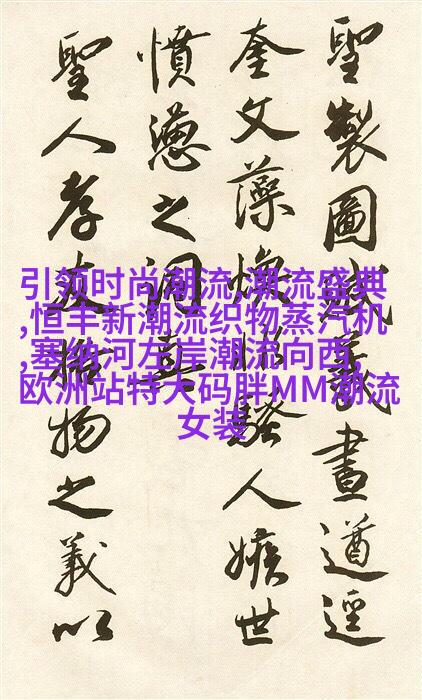 聖製圖義畫遒逕
奎文藻煥騷人嫉世
憤懣之詞
聖人孝友物之義以
引领时尚潮流,潮流盛典
,恒丰新潮流织物蒸汽机
,塞纳河左岸潮流向西,
欧洲站特大码胖MM潮流
女装